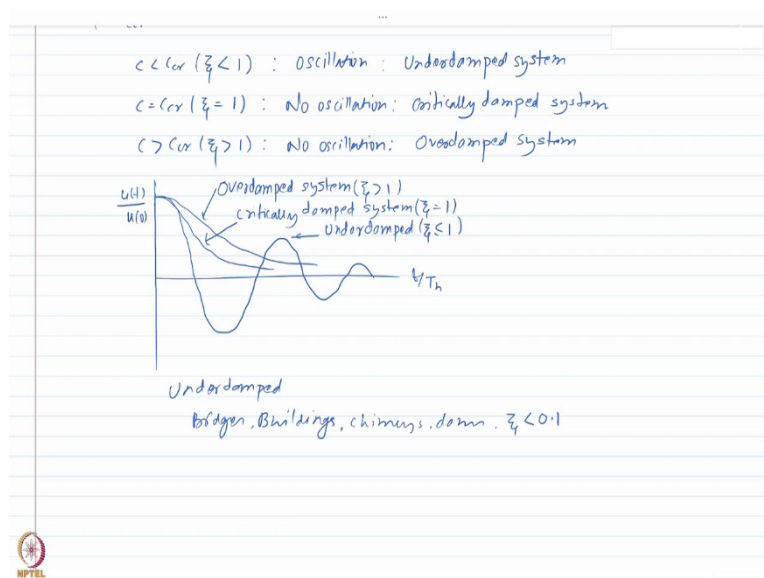 c < ccr (ξ < 1) : Oscillation : Underdamped system
c = ccr (ξ = 1) : No oscillation : Critically damped system
c > ccr (ξ > 1) : No oscillation : Overdamped system
u(t)/u(0)
Overdamped system (ξ > 1)
Critically damped system (ξ = 1)
Underdamped (ξ < 1)
t/Tn
Underdamped
Bridges, Buildings, chimneys, dams. ξ < 0.1
NPTEL